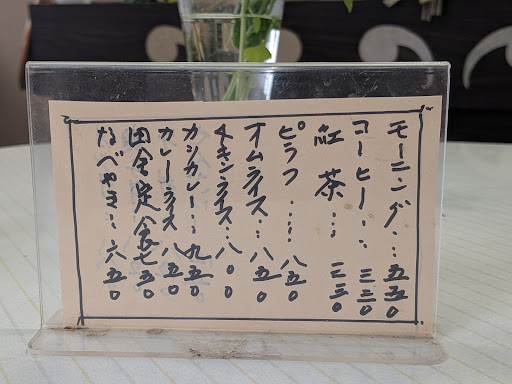 モーニング…五五〇
コーヒー…三三〇
紅茶…三三〇
ピラフ……八五〇
オムライス…八五〇
チキンライス…八〇〇
カツカレー…九五〇
カレーライス 八五〇
田舎定食七五〇
なべやき…六五〇